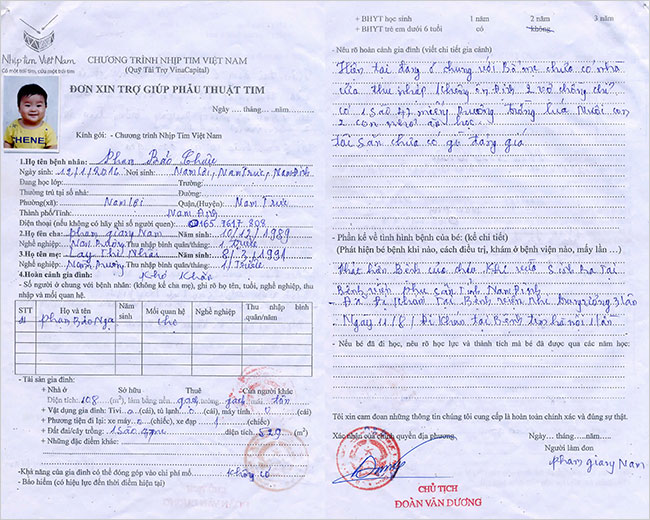 Nhịp Tim Việt Nam
Có một trái tim, cứu một trái tim
CHƯƠNG TRÌNH NHỊP TIM VIỆT NAM
(Quỹ Tài Trợ VinaCapital)
ĐƠN XIN TRỢ GIÚP PHẪU THUẬT TIM
Ngày .... tháng.... năm...........
HENE
Kính gởi: - Chương trình Nhịp Tim Việt Nam
1.Họ tên bệnh nhân: Phạm Bảo
Ngày sinh: 12/1/2016 Nơi sinh: Nam Lợi, Nam Trực, Nam Định
Đang học lớp: Trường:
Thường trú tại số nhà: Đường:
Phường(xã): Nam Lợi Quận,(Huyện): Nam Trực
Thành phố/Tỉnh: Nam Định
Điện thoại (nếu không có hãy ghi số người quen): 0165 7617 808
2.Họ tên cha: phạm giang Nam Năm sinh: 10/12/1989
Nghề nghiệp: Thu nhập bình quân/tháng: 1 triệu
3.Họ tên mẹ: Thị Năm sinh: 8/3/1991
Nghề nghiệp: Thu nhập bình quân/tháng: 1 triệu
4.Hoàn cảnh gia đình: Khó Khăn
- Số người ở chung với bệnh nhân: (không kể cha mẹ), ghi rõ họ tên, tuổi, nghề nghiệp, thu nhập và mối quan hệ.
STT Họ và tên Năm sinh Mối quan hệ Nghề nghiệp Thu nhập bình quân/năm
phạm Bảo Ngọc
- Tài sản gia đình:
+ Nhà ở Sở hữu Thuê Của người khác
Diện tích: 108 (m²), làm bằng nền: gạch mái tôn
+ Vật dụng gia đình: Tivi 0 (cái), tủ lạnh 0 (cái), máy tính 0 (cái)
+ Phương tiện đi lại: xe máy 0 (chiếc), xe đạp 1 (chiếc)
+ Đất đai/cây trồng: 1 sào diện tích 529 (m²)
+ Những đặc điểm khác:
-Khả năng của gia đình có thể đóng góp vào chi phí mổ Không có
- Bảo hiểm (có hiệu lực đến thời điểm hiện tại)
+ BHYT học sinh 1 năm 2 năm 3 năm
+ BHYT trẻ em dưới 6 tuổi có không
- Nêu rõ hoàn cảnh gia đình (viết chi tiết gia cảnh)
Hiện tại đang ở chung với Bố mẹ chưa có nhà
của thu nhập không ổn định 2 vợ chồng chỉ
có 1 sào trồng lúa Nuôi con
2 con học
tài sản chưa có gì đáng giá
- Phần kể về tình hình bệnh của bé: (kể chi tiết)
(Phát hiện bé bệnh khi nào, cách điều trị, khám ở bệnh viện nào, mấy lần ...)
Phát hiện Bệnh của cháu Khi vừa Sinh ra Tại
Bệnh viện phụ sản Tỉnh Nam Định
- Đã Đi Khám Tại Bệnh viện Nhi trung ương
Ngày 11/8/ Đi Khám tại Bệnh hà nội 1 lần
- Nếu bé đã đi học, nêu rõ học lực và thành tích mà bé đã được qua các năm học:
Tôi xin cam đoan những thông tin chúng tôi cung cấp là hoàn toàn chính xác và đúng sự thật.
Xác nhận của chính quyền địa phương Ngày.....tháng.....năm.......
Người làm đơn
phạm giang Nam
CHỦ TỊCH
ĐOÀN VĂN DƯƠNG